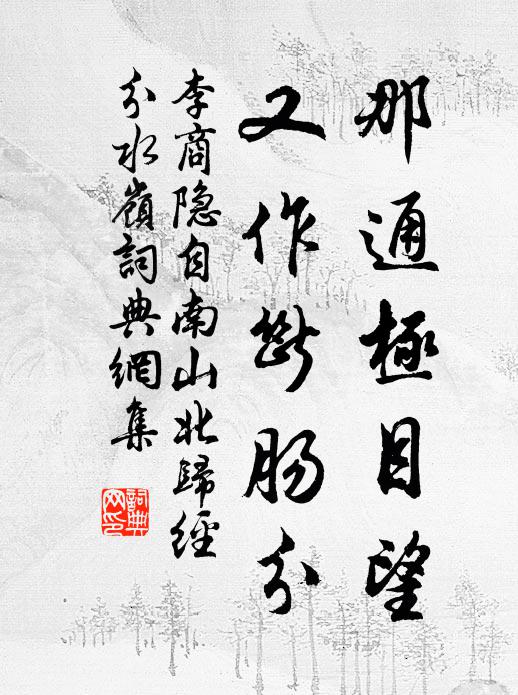 那通極目望
又作斷腸分
李商隐自南山北歸經
分水嶺詞典網集
詞典
网印